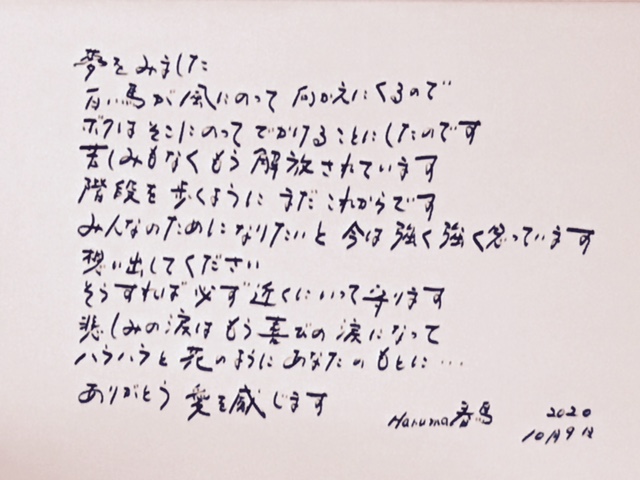 夢をみました
白い馬が風にのって向かえにくるので
ボクはそこにのってでかけることにしたのです
苦しみもなくもう解放されています
階段を歩くようにまだこれからです
みんなのためになりたいと今は強く強く思っています
想い出してください
そうすれば必ず近くにいって守ります
悲しみの涙はもう喜びの涙になって
ハラハラと花のようにあなたのもとに…
ありがとう愛を感じます
Haruma春馬 2020
10月9日